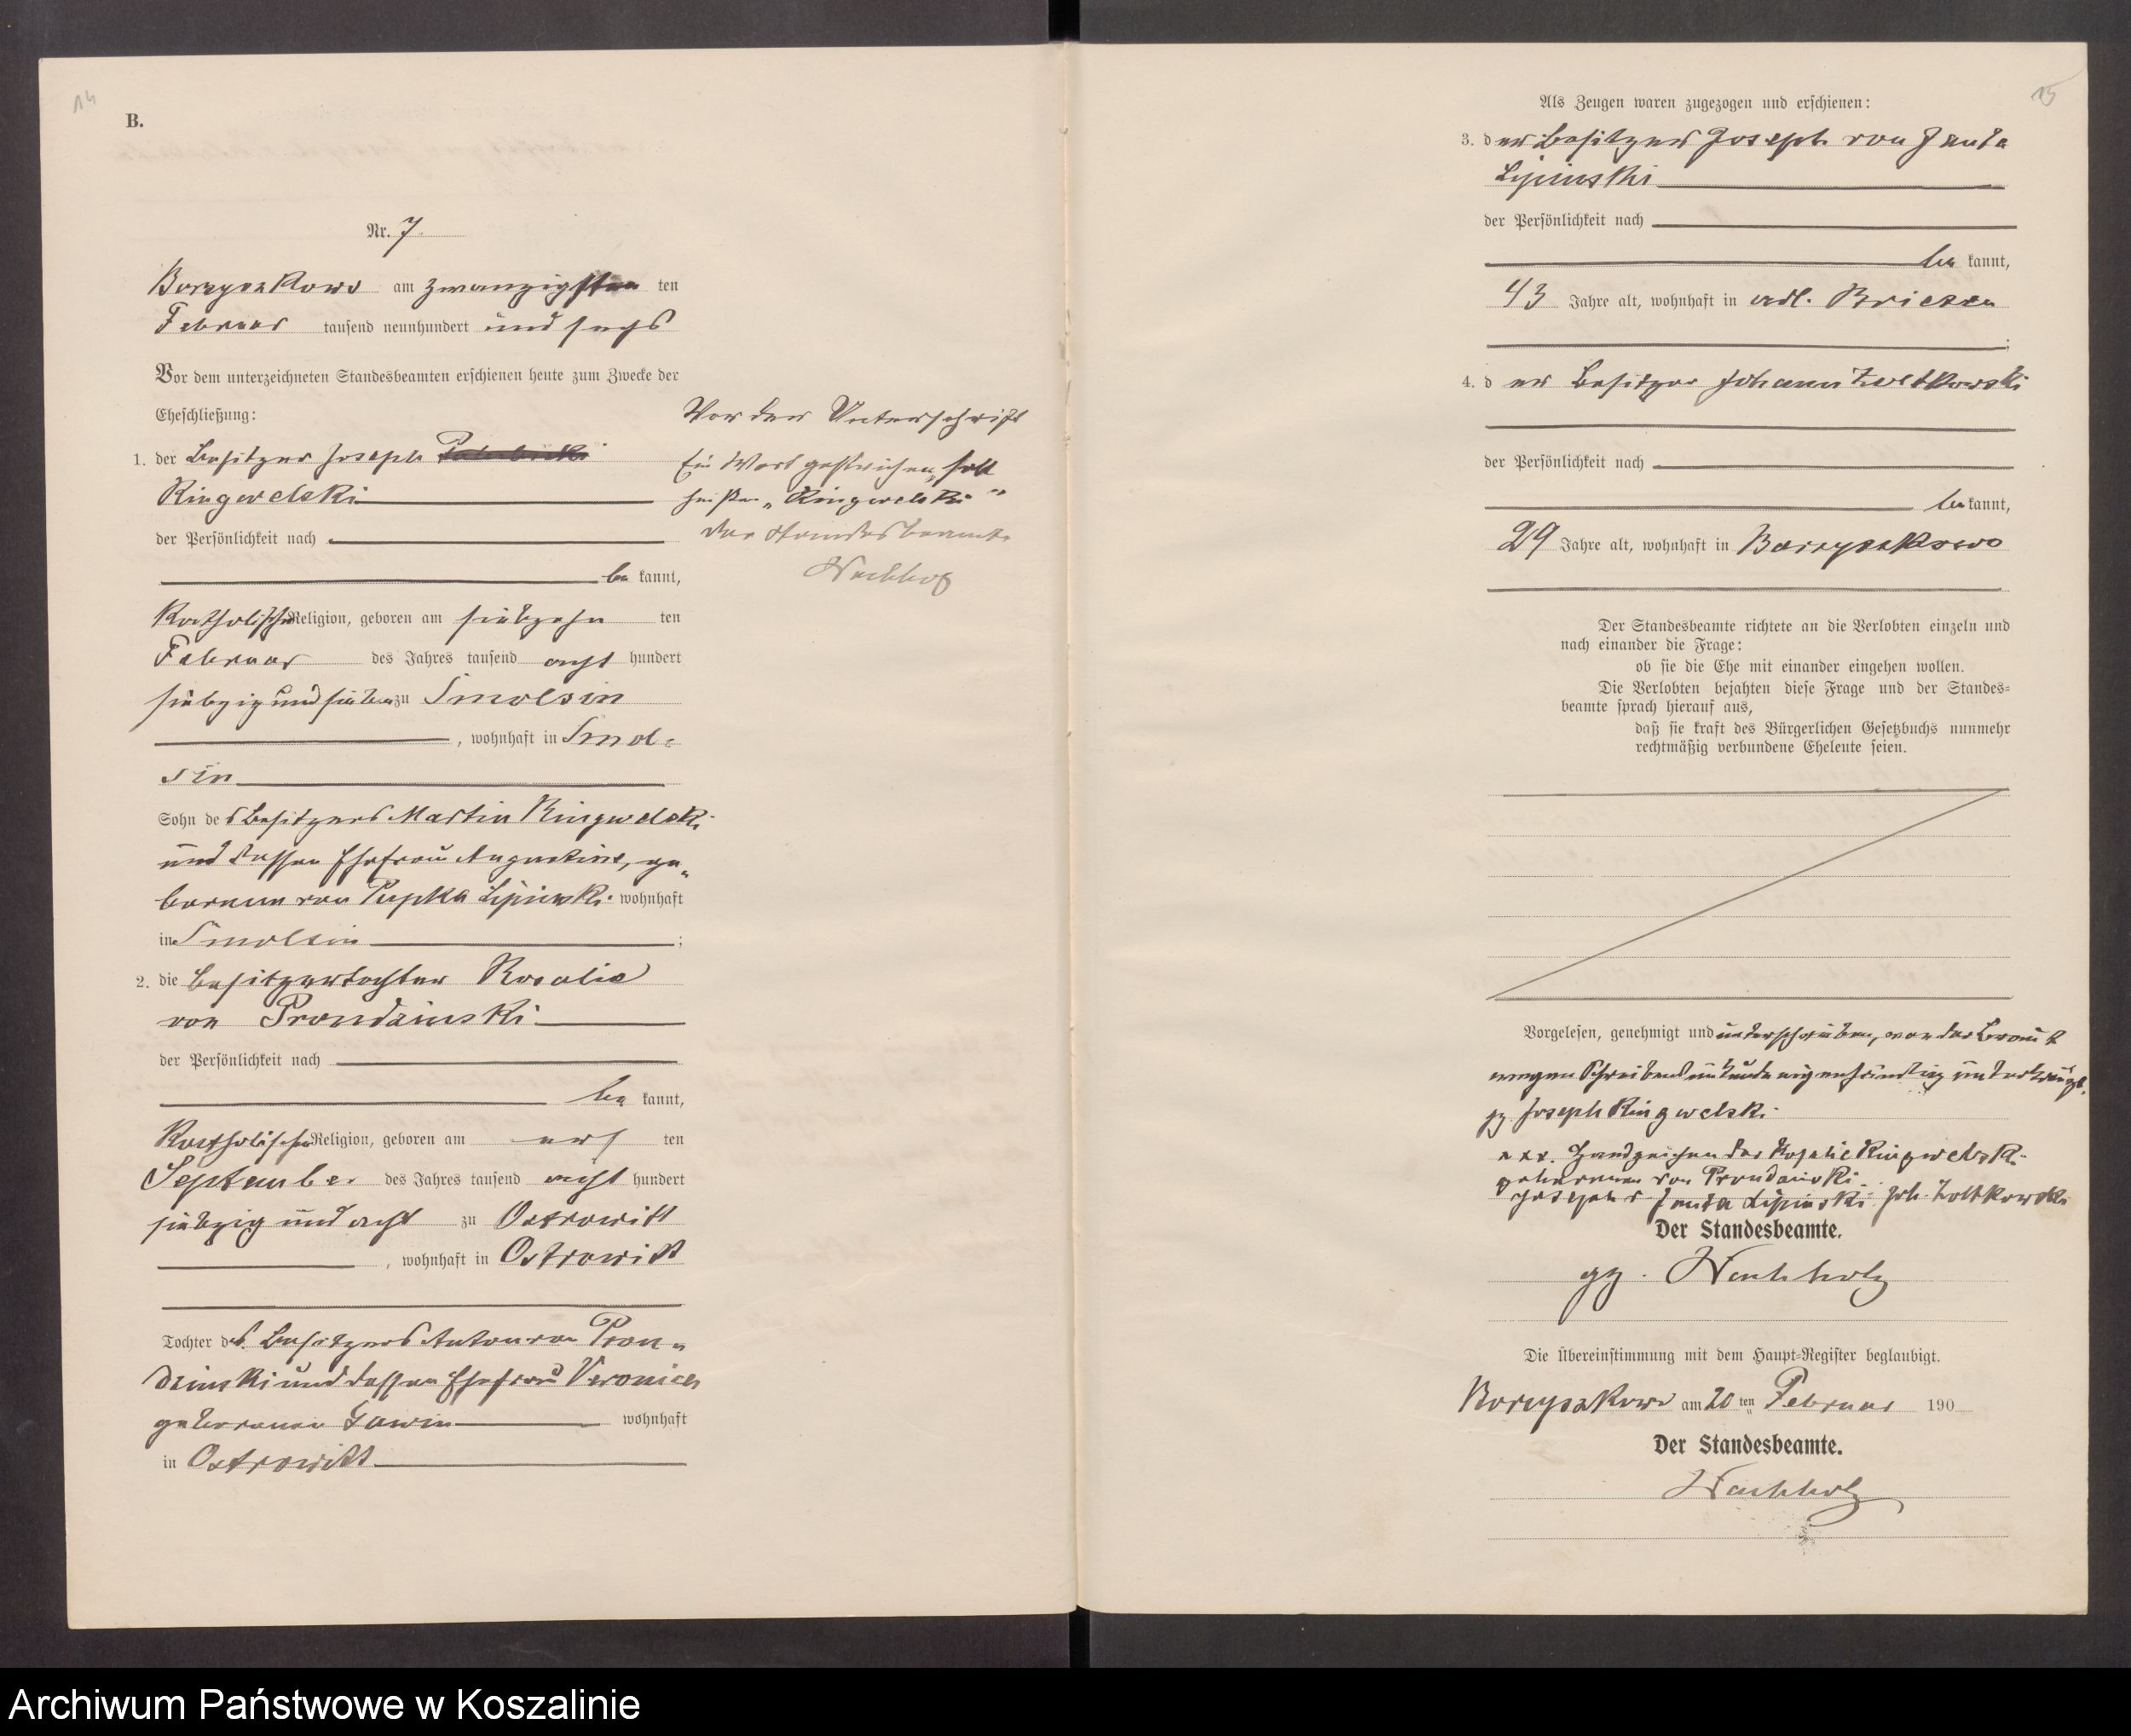 14
B.
Nr. 7.
Borzyszkowo am zwanzigsten ten
Februar tausend neunhundert und sechs
Vor dem unterzeichneten Standesbeamten erschienen heute zum Zwecke der
Eheschließung:
1. der Besitzer Joseph
Ringwelski
der Persönlichkeit nach
be kannt,
Katholischer Religion, geboren am siebzehn ten
Februar des Jahres tausend acht hundert
siebzig und sieben zu Smolsin
, wohnhaft in Smol=
sin
Sohn des Besitzers Martin Ringwelski
und dessen Ehefrau Augustine, ge„
borenen von Pupka Lipinski wohnhaft
in Smolsin ;
2. die Besitzertochter Rosalie
von Prondzinski
der Persönlichkeit nach
be kannt,
Katholischer Religion, geboren am ers ten
September des Jahres tausend acht hundert
siebzig und acht zu Ostrowitt
, wohnhaft in Ostrowitt
Tochter des Besitzers Anton von Pron„
dzinski und dessen Ehefrau Veronica
geborenen wohnhaft
in Ostrowitt
Vor der Unterschrift
Ein Wort gestrichen, soll
heißen „Ringwelski“
Der Standesbeamte
Wachholz
15
Als Zeugen waren zugezogen und erschienen:
3. der Besitzer Joseph von Janta
Lipinski
der Persönlichkeit nach
be kannt,
43 Jahre alt, wohnhaft in adl. Briesen
;
4. der Besitzer Johann Zoltkowski
der Persönlichkeit nach
be kannt,
29 Jahre alt, wohnhaft in Borzyszkowo
Der Standesbeamte richtete an die Verlobten einzeln und
nach einander die Frage:
ob sie die Ehe mit einander eingehen wollen.
Die Verlobten bejahten diese Frage und der Standes=
beamte sprach hierauf aus,
daß sie kraft des Bürgerlichen Gesetzbuchs nunmehr
rechtmäßig verbundene Eheleute seien.
Vorgelesen, genehmigt und unterschrieben, von der Braut
wegen Schreibensunkunde eigenhändig unterkreuzt.
gz. Joseph Ringwelski.
xxx. Handzeichen der Rosalie Ringwelski
geborenen von Prondzinski
Joseph v Janta Lipinski Joh. Zoltkowski
Der Standesbeamte.
gz. Wachholz
Die Übereinstimmung mit dem Haupt=Register beglaubigt.
Borzyszkowo am 20 ten Februar 190
Der Standesbeamte.
Wachholz
Archiwum Państwowe w Koszalinie